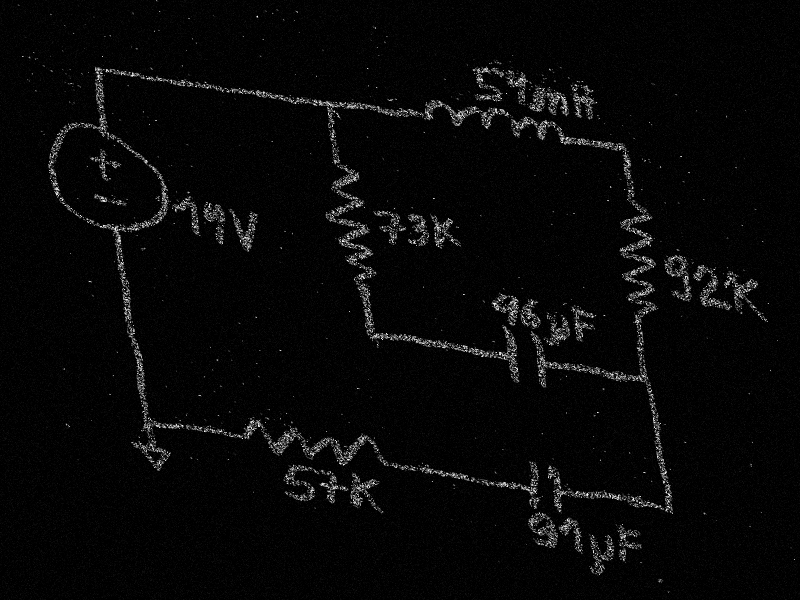 54mH
19V
73K
92K
96µF
57K
91µF